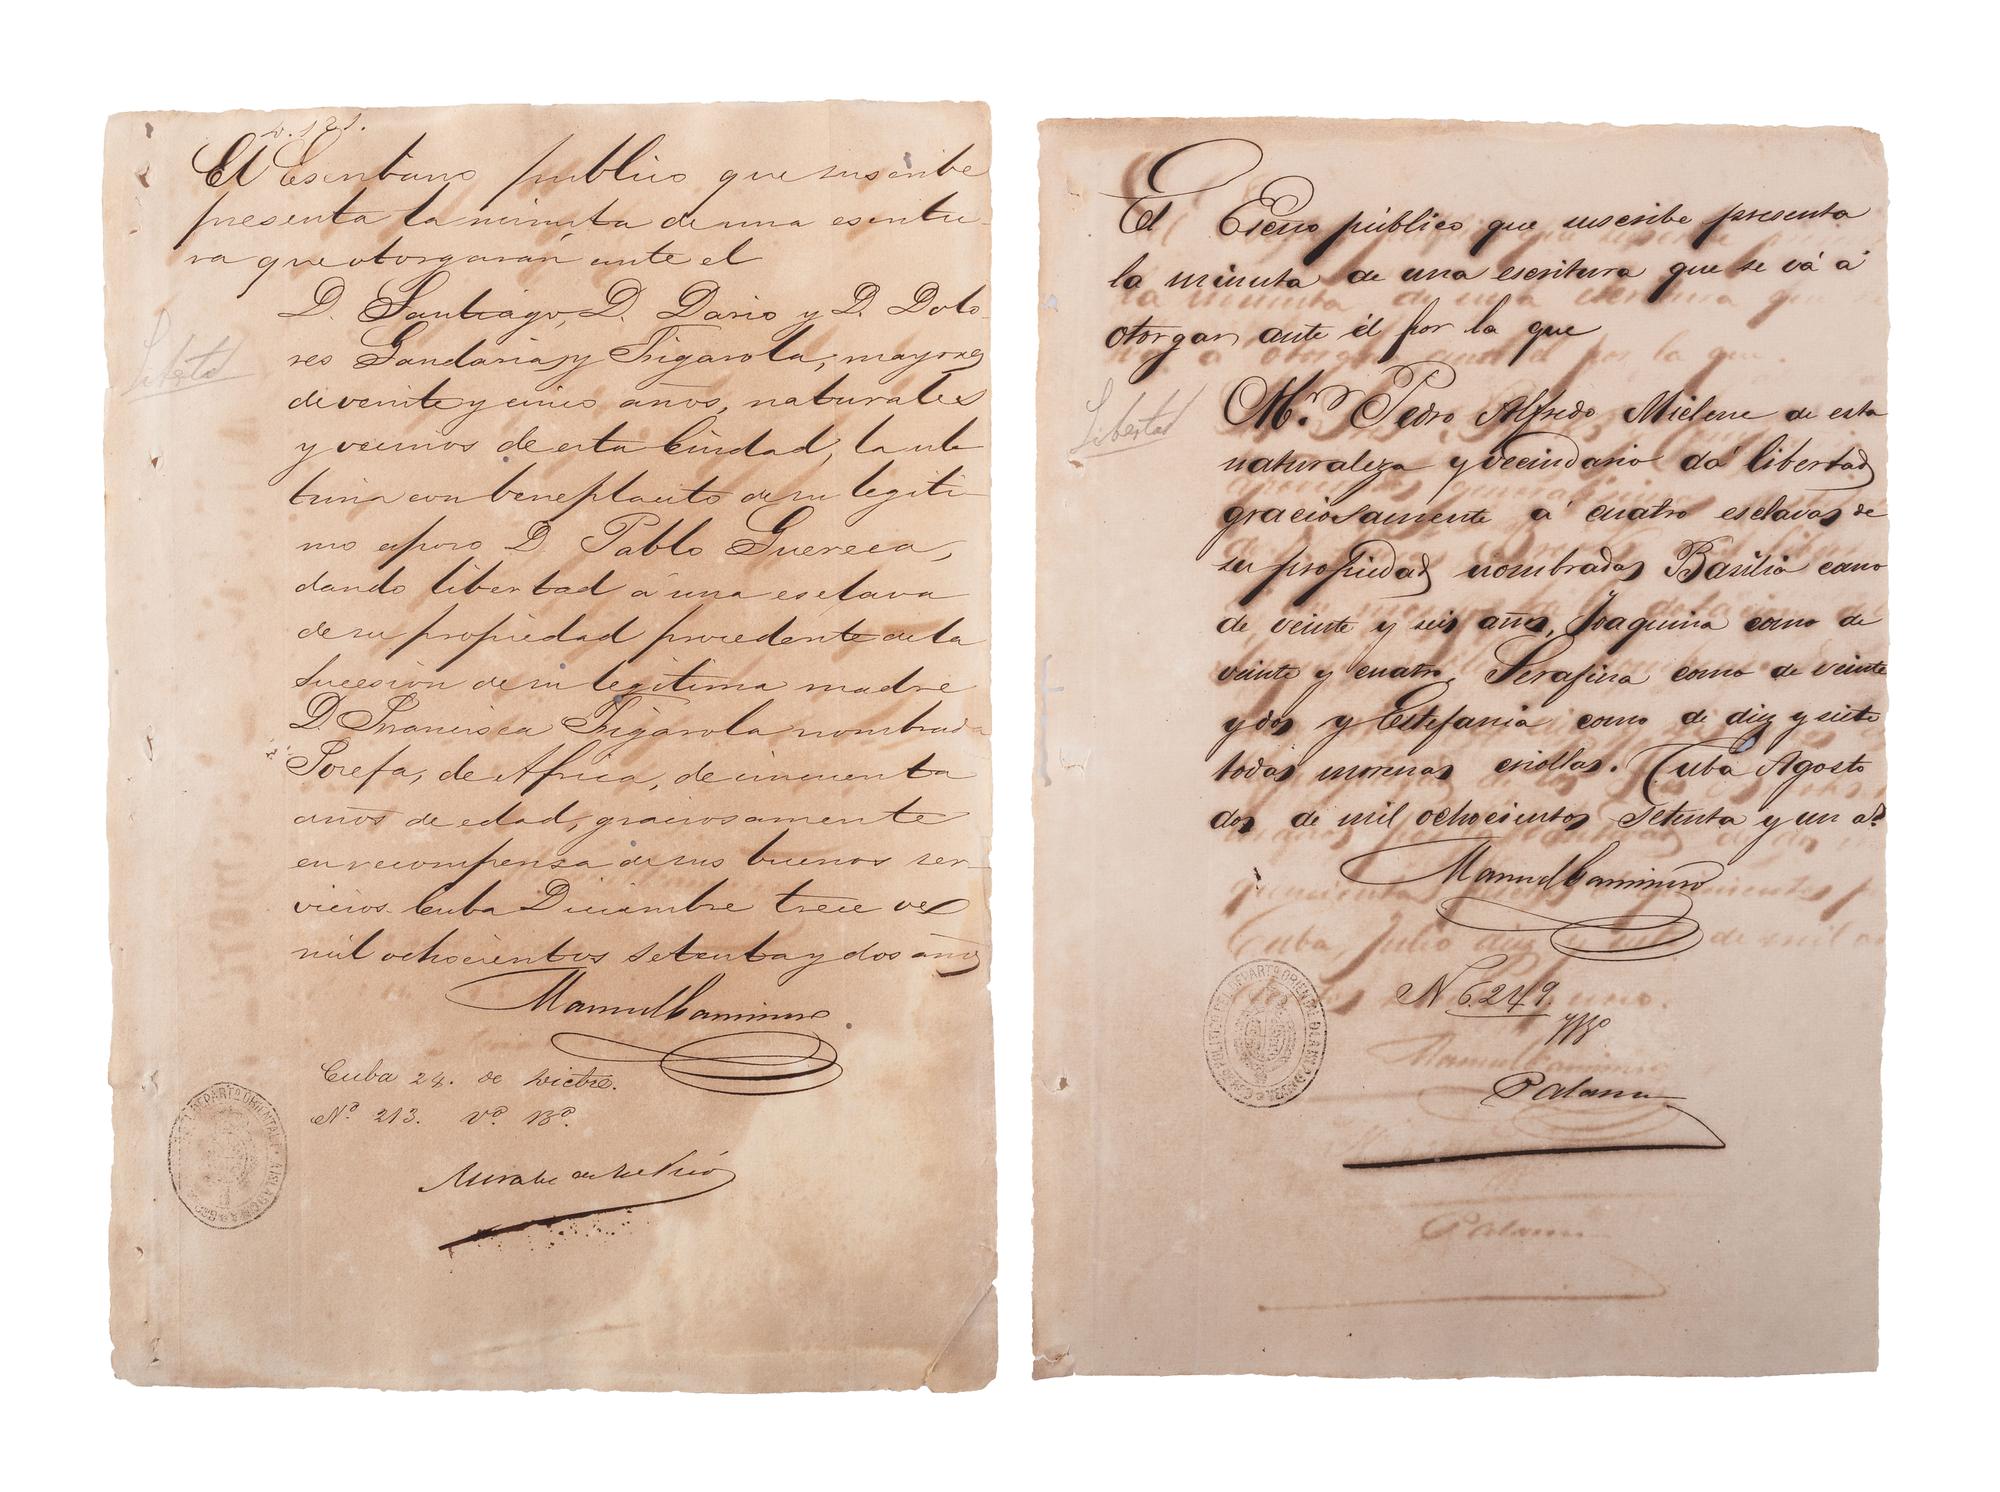 El Escribano publico que suscribe
presenta la minuta de una escritu-
ra que otorgarán ante el
D. Santiago, D. Dario y D. Dolo-
res Gandarias y Figarola, mayores
de veinte y cinco años, naturales
y vecinos de esta Ciudad, la ul-
tima con beneplacito de su legiti-
mo esposo D. Pablo Guereca,
dando libertad á una esclava
de su propiedad procedente de la
sucesion de su legitima madre
D. Francisca Figarola nombrada
Josefa, de Africa, de cincuenta
años de edad, graciosamente
en recompensa de sus buenos ser-
vicios. Cuba Diciembre trece de
mil ochocientos setenta y dos años
Manuel Caminero
Cuba 24. de Dicbre.
Nº 213. Vº Bº.
Libertad
El Escno público que suscribe presenta
la minuta de una escritura que se vá á
otorgar ante él por la que
Mr. Pedro Alfredo Miclene de esta
naturaleza y vecindario dá libertad
graciosamente á cuatro esclavas de
su propiedad nombradas Basilia como
de veinte y seis años, Joaquina como de
veinte y cuatro, Serafina como de veinte
y dos y Estefania como de diez y siete
todas morenas criollas. Cuba Agosto
dos de mil ochocientos setenta y un aº
Manuel Caminero
N 6.249.
Libertad